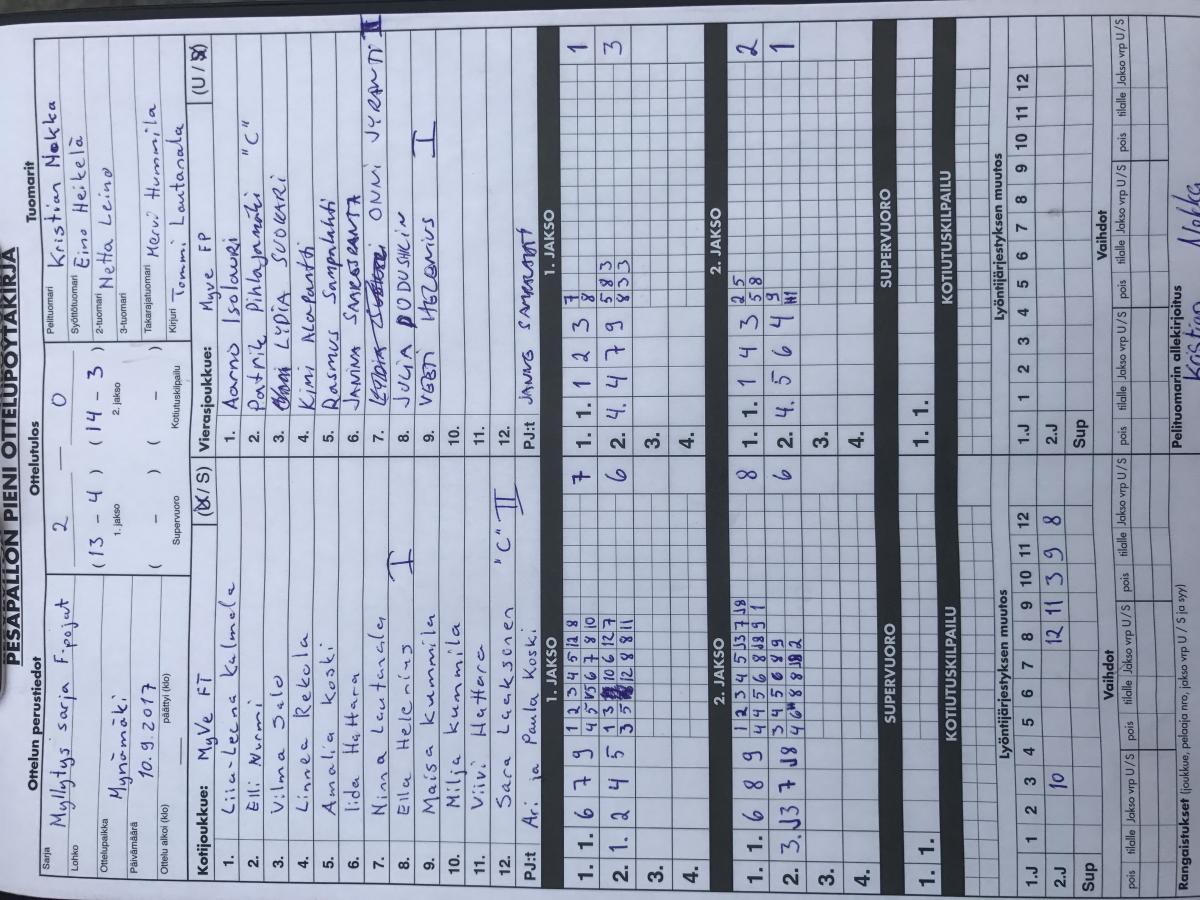 PESÄPALLON PIENI OTTELUPÖYTÄKIRJA
Ottelun perustiedot
Sarja Myllytys sarja F-pojat
Lohko
Ottelupaikka Mynämäki
Päivämäärä 10.9.2017
Ottelu alkoi (klo) päättyi (klo)
Ottelutulos
2 — 0
(13 - 4) (14 - 3)
1. jakso 2. jakso
( - ) ( - )
Supervuoro Kotiutuskilpailu
Tuomarit
Pelituomari Kristian Nokka
Syöttötuomari Eino Heikelä
2-tuomari Netta Leino
3-tuomari
Takarajatuomari Mervi Hummila
Kirjuri Tommi Lautanala
Kotijoukkue: MyVe FT (U / S)
1. Liia-Leena Kalmela
2. Elli Nurmi
3. Vilma Salo
4. Linnea Rekola
5. Amalia Koski
6. Iida Hattara
7. Ninna Lautanala
8. Ella Helenius I
9. Maisa Kummila
10. Milja Kummila
11. Viivi Hattara
12. Sara Laaksonen "C" II
PJ:t Ari ja Paula Koski
Vierasjoukkue: Myve FP (U / S)
1. Aarno Isolauri
2. Patrik Pihlajamäki "C"
3. LYDIA SUOKARI
4. Kimi Alapantti
5. Rasmus Sampolahti
6. JANINA SAARIRANTA
7. ONNI JYRANTI II
8. JULIA DUDUSHKIN
9. VEETI HELENIUS I
10.
11.
12.
PJ:t JANNE
1. JAKSO
1. 1. 6 7 9 7
2. 1. 2 4 5 6
3.
4.
1. JAKSO
1. 1. 1 2 3 7 8 1
2. 4. 4 7 9 5 8 3 8 3 3 3
3.
4.
2. JAKSO
1. 1. 6 8 9 8
2. 3. J3 7 J8 6
3.
4.
2. JAKSO
1. 1. 1 4 3 2 5 5 8 2
2. 4. 5 6 4 9 1
3.
4.
SUPERVUORO
1. 1.
SUPERVUORO
1. 1.
KOTIUTUSKILPAILU
KOTIUTUSKILPAILU
Lyöntijärjestyksen muutos
1.J 1 2 3 4 5 6 7 8 9 10 11 12
2.J 10 12 11 3 9 8
Sup
Lyöntijärjestyksen muutos
1.J 1 2 3 4 5 6 7 8 9 10 11 12
2.J
Sup
Vaihdot
pois tilalle Jakso vrp U / S pois tilalle Jakso vrp U / S pois tilalle Jakso vrp U / S
Vaihdot
pois tilalle Jakso vrp U / S pois tilalle Jakso vrp U / S pois tilalle Jakso vrp U / S
Rangaistukset (joukkue, pelaaja nro, jakso vrp U / S ja syy)
Pelituomarin allekirjoitus
Kristian Nokka